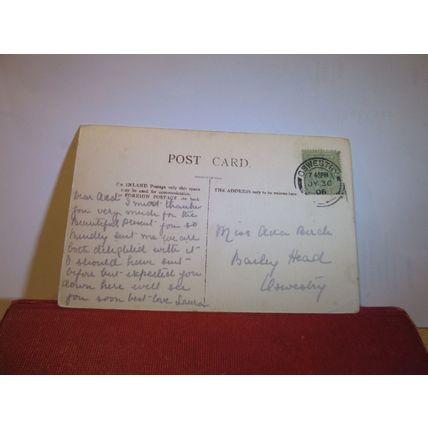 POST CARD.
For INLAND Postage only this space
may be used for communication.
For FOREIGN POSTAGE the back
THE ADDRESS only to be written here
OSWESTRY
7 45PM
JY 30
06
Dear I must thank
you very much for the
beautiful present you so
kindly sent me we are
both delighted with it
I should have sent
before but expected you
down here will see
you soon best love Laura
Miss Birch
Bailey Head
Oswestry